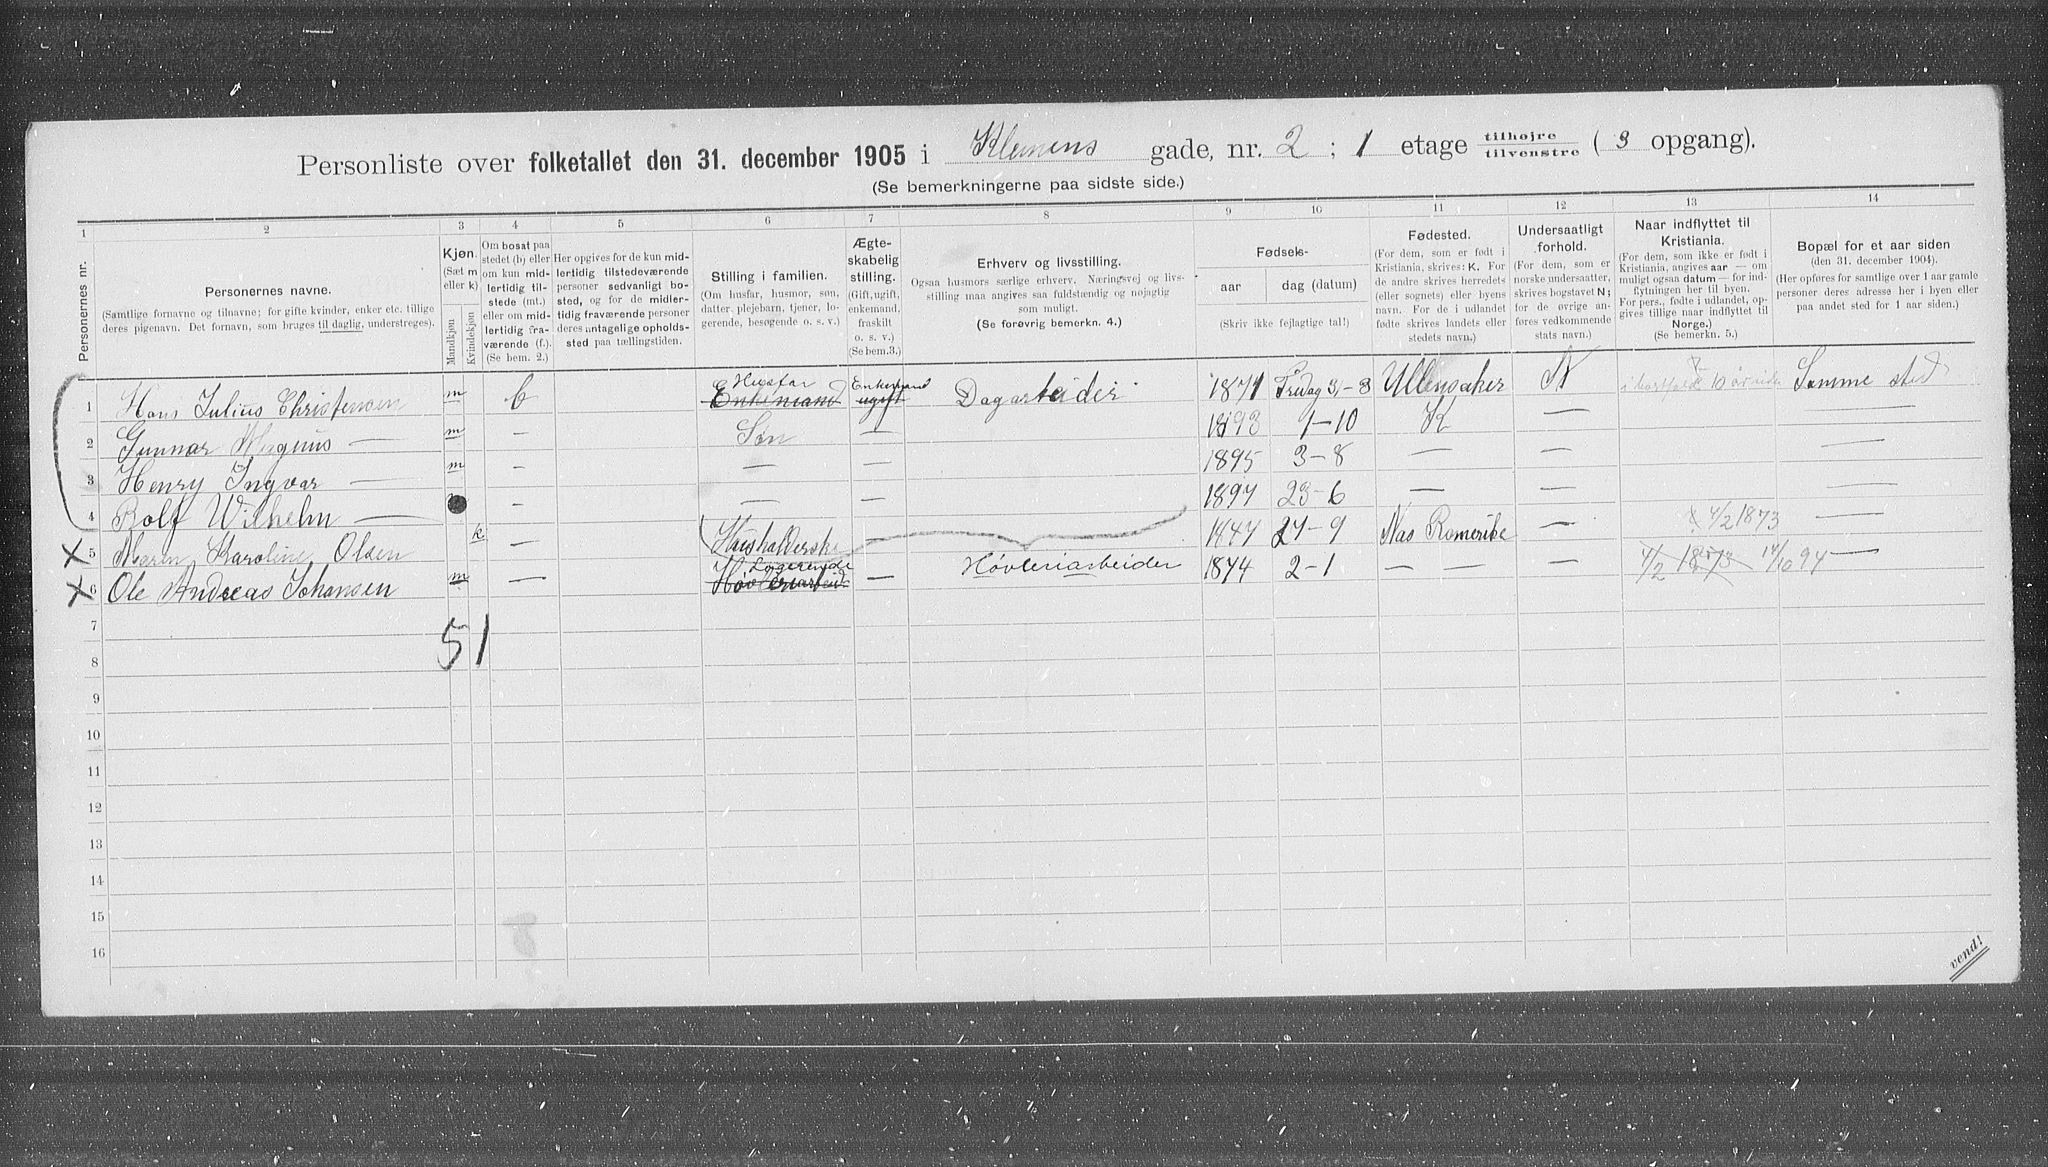 Personliste over folketallet den 31. december 1905 i Klemens gade, nr. 2 ; 1 etage tilhøjre/tilvenstre ( 3 opgang).
(Se bemerkningerne paa sidste side.)
1 2 3 4 5 6 7 8 9 10 11 12 13 14
Personernes nr.
Personernes navne.
(Samtlige fornavne og tilnavne; for gifte kvinder, enker etc. tillige deres pigenavn. Det fornavn, som bruges til daglig, understreges).
Kjøn.
(Sæt m eller k)
Mandkjøn
Kvindekjøn
Om bosat paa stedet (b) eller om kun midlertidig tilstede (mt.) eller om midlertidig fraværende (f.). (Se bem. 2.)
Her opgives for de kun midlertidig tilstedeværende personer sedvanligt bosted, og for de midlertidig fraværende personer deres antagelige opholdssted paa tællingstiden.
Stilling i familien.
(Om husfar, husmor, søn, datter, plejebarn, tjener, logerende, besøgende o. s. v.)
Ægteskabelig stilling.
(Gift, ugift, enkemand, fraskilt o. s. v.)
(Se bem.3.)
Erhverv og livsstilling.
Ogsaa husmors særlige erhverv. Næringsvej og livsstilling maa angives saa fuldstændig og nøjagtig som muligt.
(Se forøvrig bemerkn. 4.)
Fødsels-
aar
dag (datum)
(Skriv ikke fejlagtige tal!)
Fødested.
(For dem, som er født i Kristiania, skrives: K. For de andre skrives herredets (eller sognets) eller byens navn. For de i udlandet fødte skrives landets eller stedets navn.)
Undersaatligt forhold.
(For dem, som er norske undersaatter, skrives bogstavet N; for de øvrige anføres vedkommende stats navn.)
Naar indflyttet til Kristiania.
(For dem, som ikke er født i Kristiania, angives aar — om muligt ogsaa datum — for indflytningen her til byen. For pers., fødte i udlandet, opgives tillige naar indflyttet til Norge.)
(Se bemerkn. 5.)
Bopæl for et aar siden
(den 31. december 1904).
(Her opføres for samtlige over 1 aar gamle personer deres adresse her i byen eller paa andet sted for 1 aar siden.)
1 Hans Julius Christensen m b Husfar Enkemand Enkemand ugift Dagarbeider 1871 Fredag 3-3 Ullensaker N Samme sted
2 Gunnar Magnus — m — Søn — 1893 1-10 K — —
3 Henry Ingvar — m — — — 1895 3-8 — — —
4 Rolf Wilhelm — — — — 1897 23-6 — — —
5 Maren Karoline Olsen k — Husholderske — 1847 27-9 Nas Romerike — 4/2 1873 —
6 Ole Andreas Johansen m — Logerende Høvleriarbeid — Høvleriarbeider 1874 2-1 — — — 4/2 1873 14/10 94 —
7
5 1
8
9
10
11
12
13
14
15
16
vend!